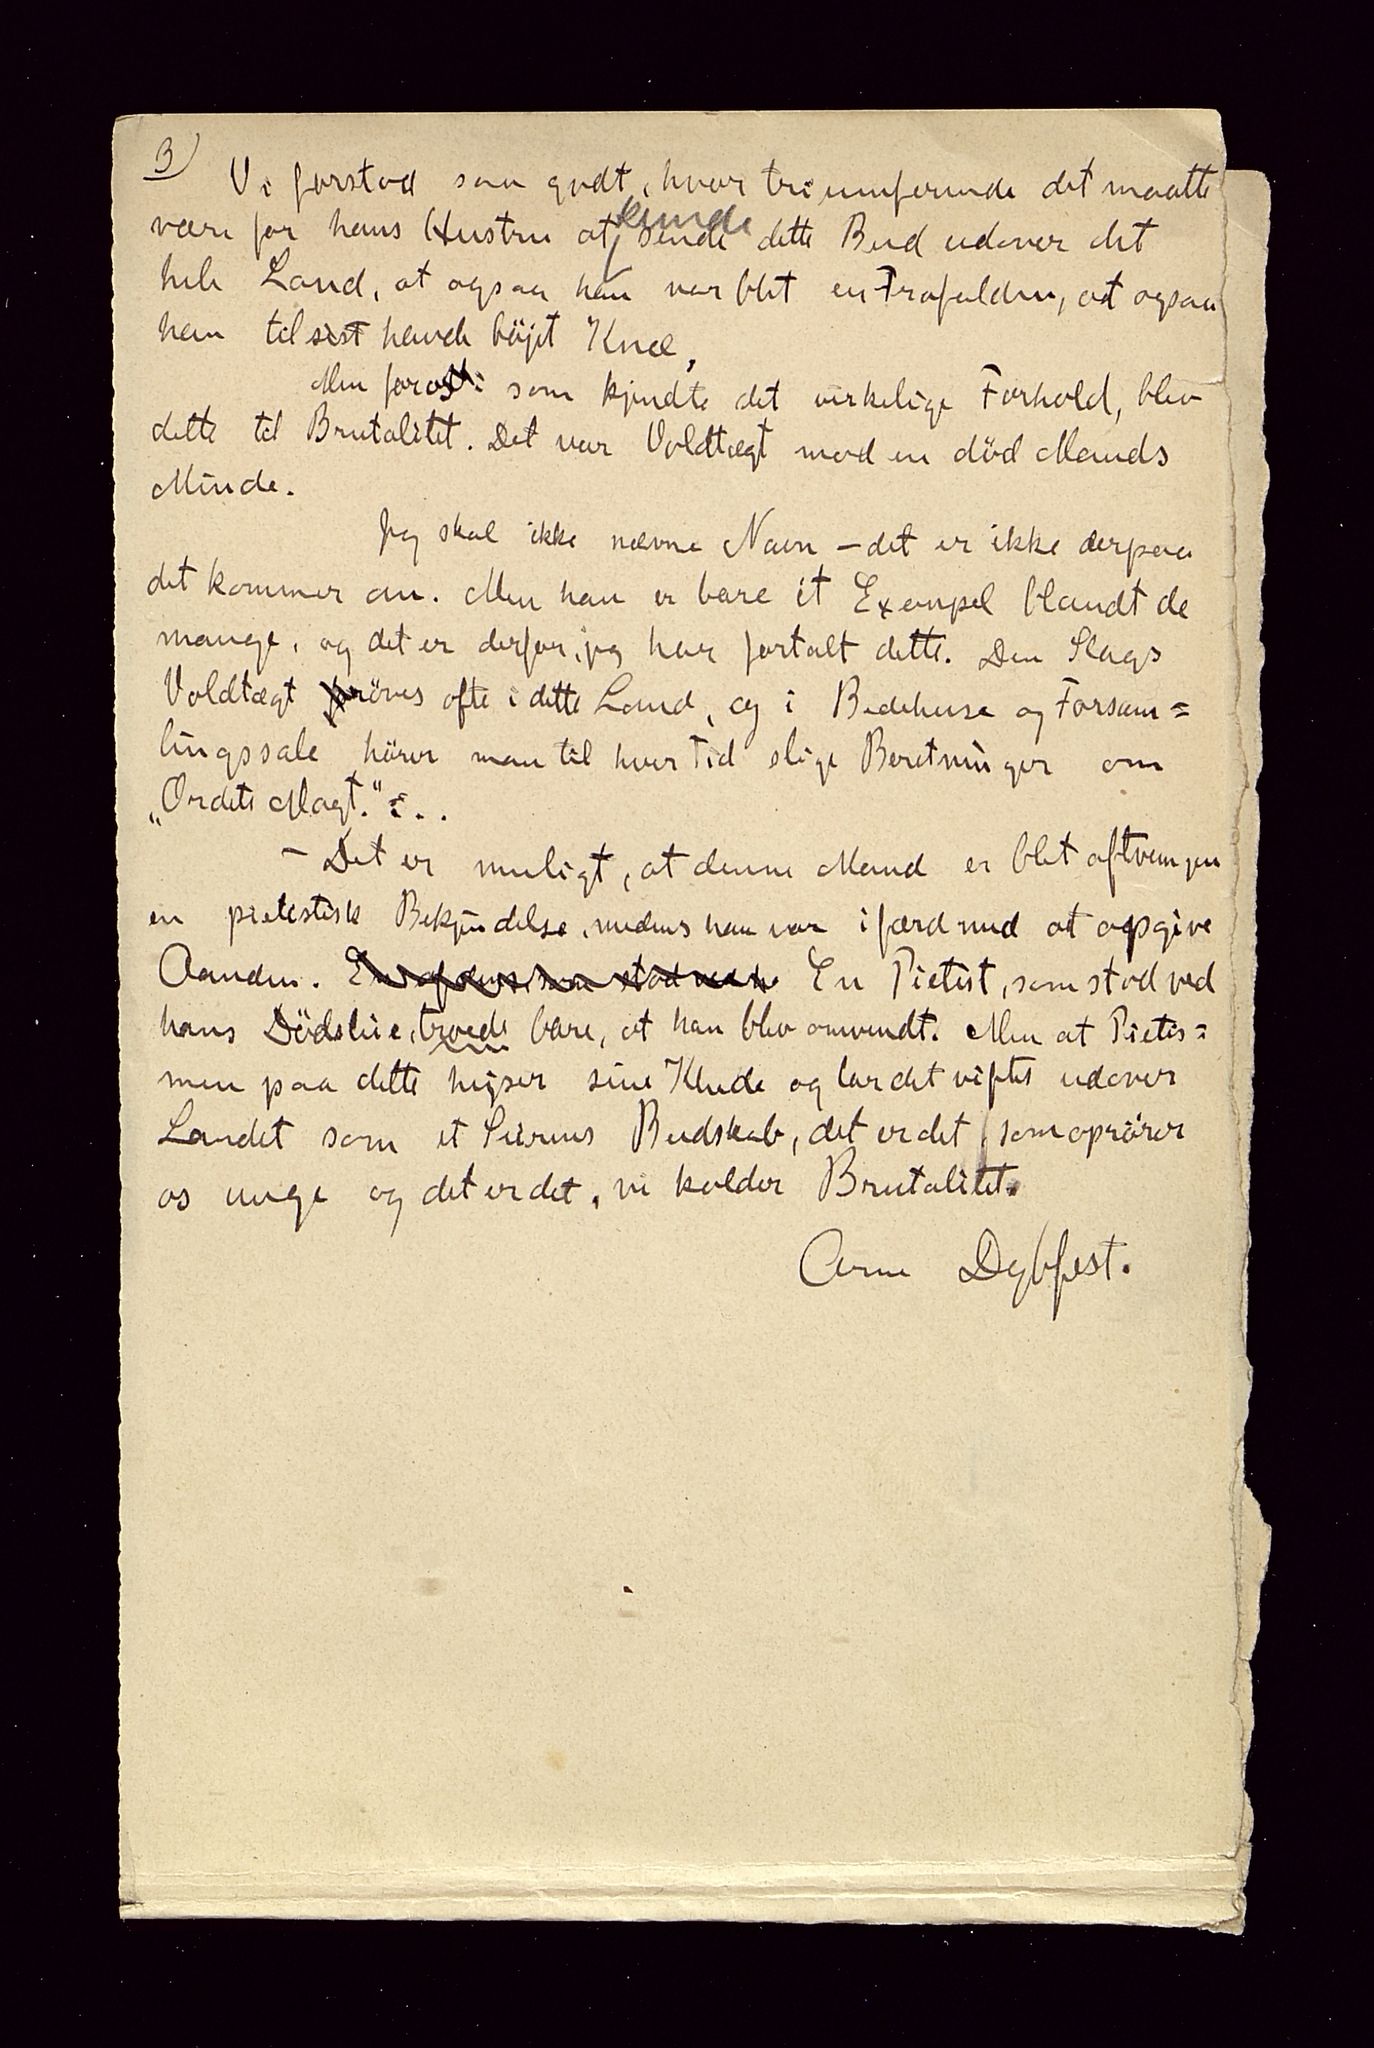 3)
Vi forstod saa godt, hvor triumferende det maatte
være for hans Hustru at kunde sende dette Bud udover det
hele Land, at ogsaa han var blit en Frafalden, at ogsaa
han tilsist havde böjet Knæ.
Men for os som kjendte det virkelige Forhold, blev
dette til Brutalitet. Det var Voldtægt mod en död Mands
Minde.
Jeg skal ikke nævne Navn – det er ikke derpaa
det kommer an. Men han er bare et Exempel blandt de
mange, og det er derfor, jeg har fortalt dette. Den Slags
Voldtægt pröves ofte i dette Land, og i Bedehuse og Forsam=
lingssale hörer man til hver Tid slige Beretninger om
„Ordets Magt." . . .
– Det er muligt, at denne Mand er blit aftvungen
en pietistisk Bekjendelse, medens han var ifærd med at opgive
Aanden. En af dem, som stod ved En Pietist, som stod ved
hans Dödsleie, troede bare, at han blev omvendt. Men at Pietis=
men paa dette hejser sine Klude og lar det vifte udover
Landet som et Seirens Budskab, det er det, som oprörer
os unge og det er det, vi kalder Brutalitet.
Arne Dybfest.